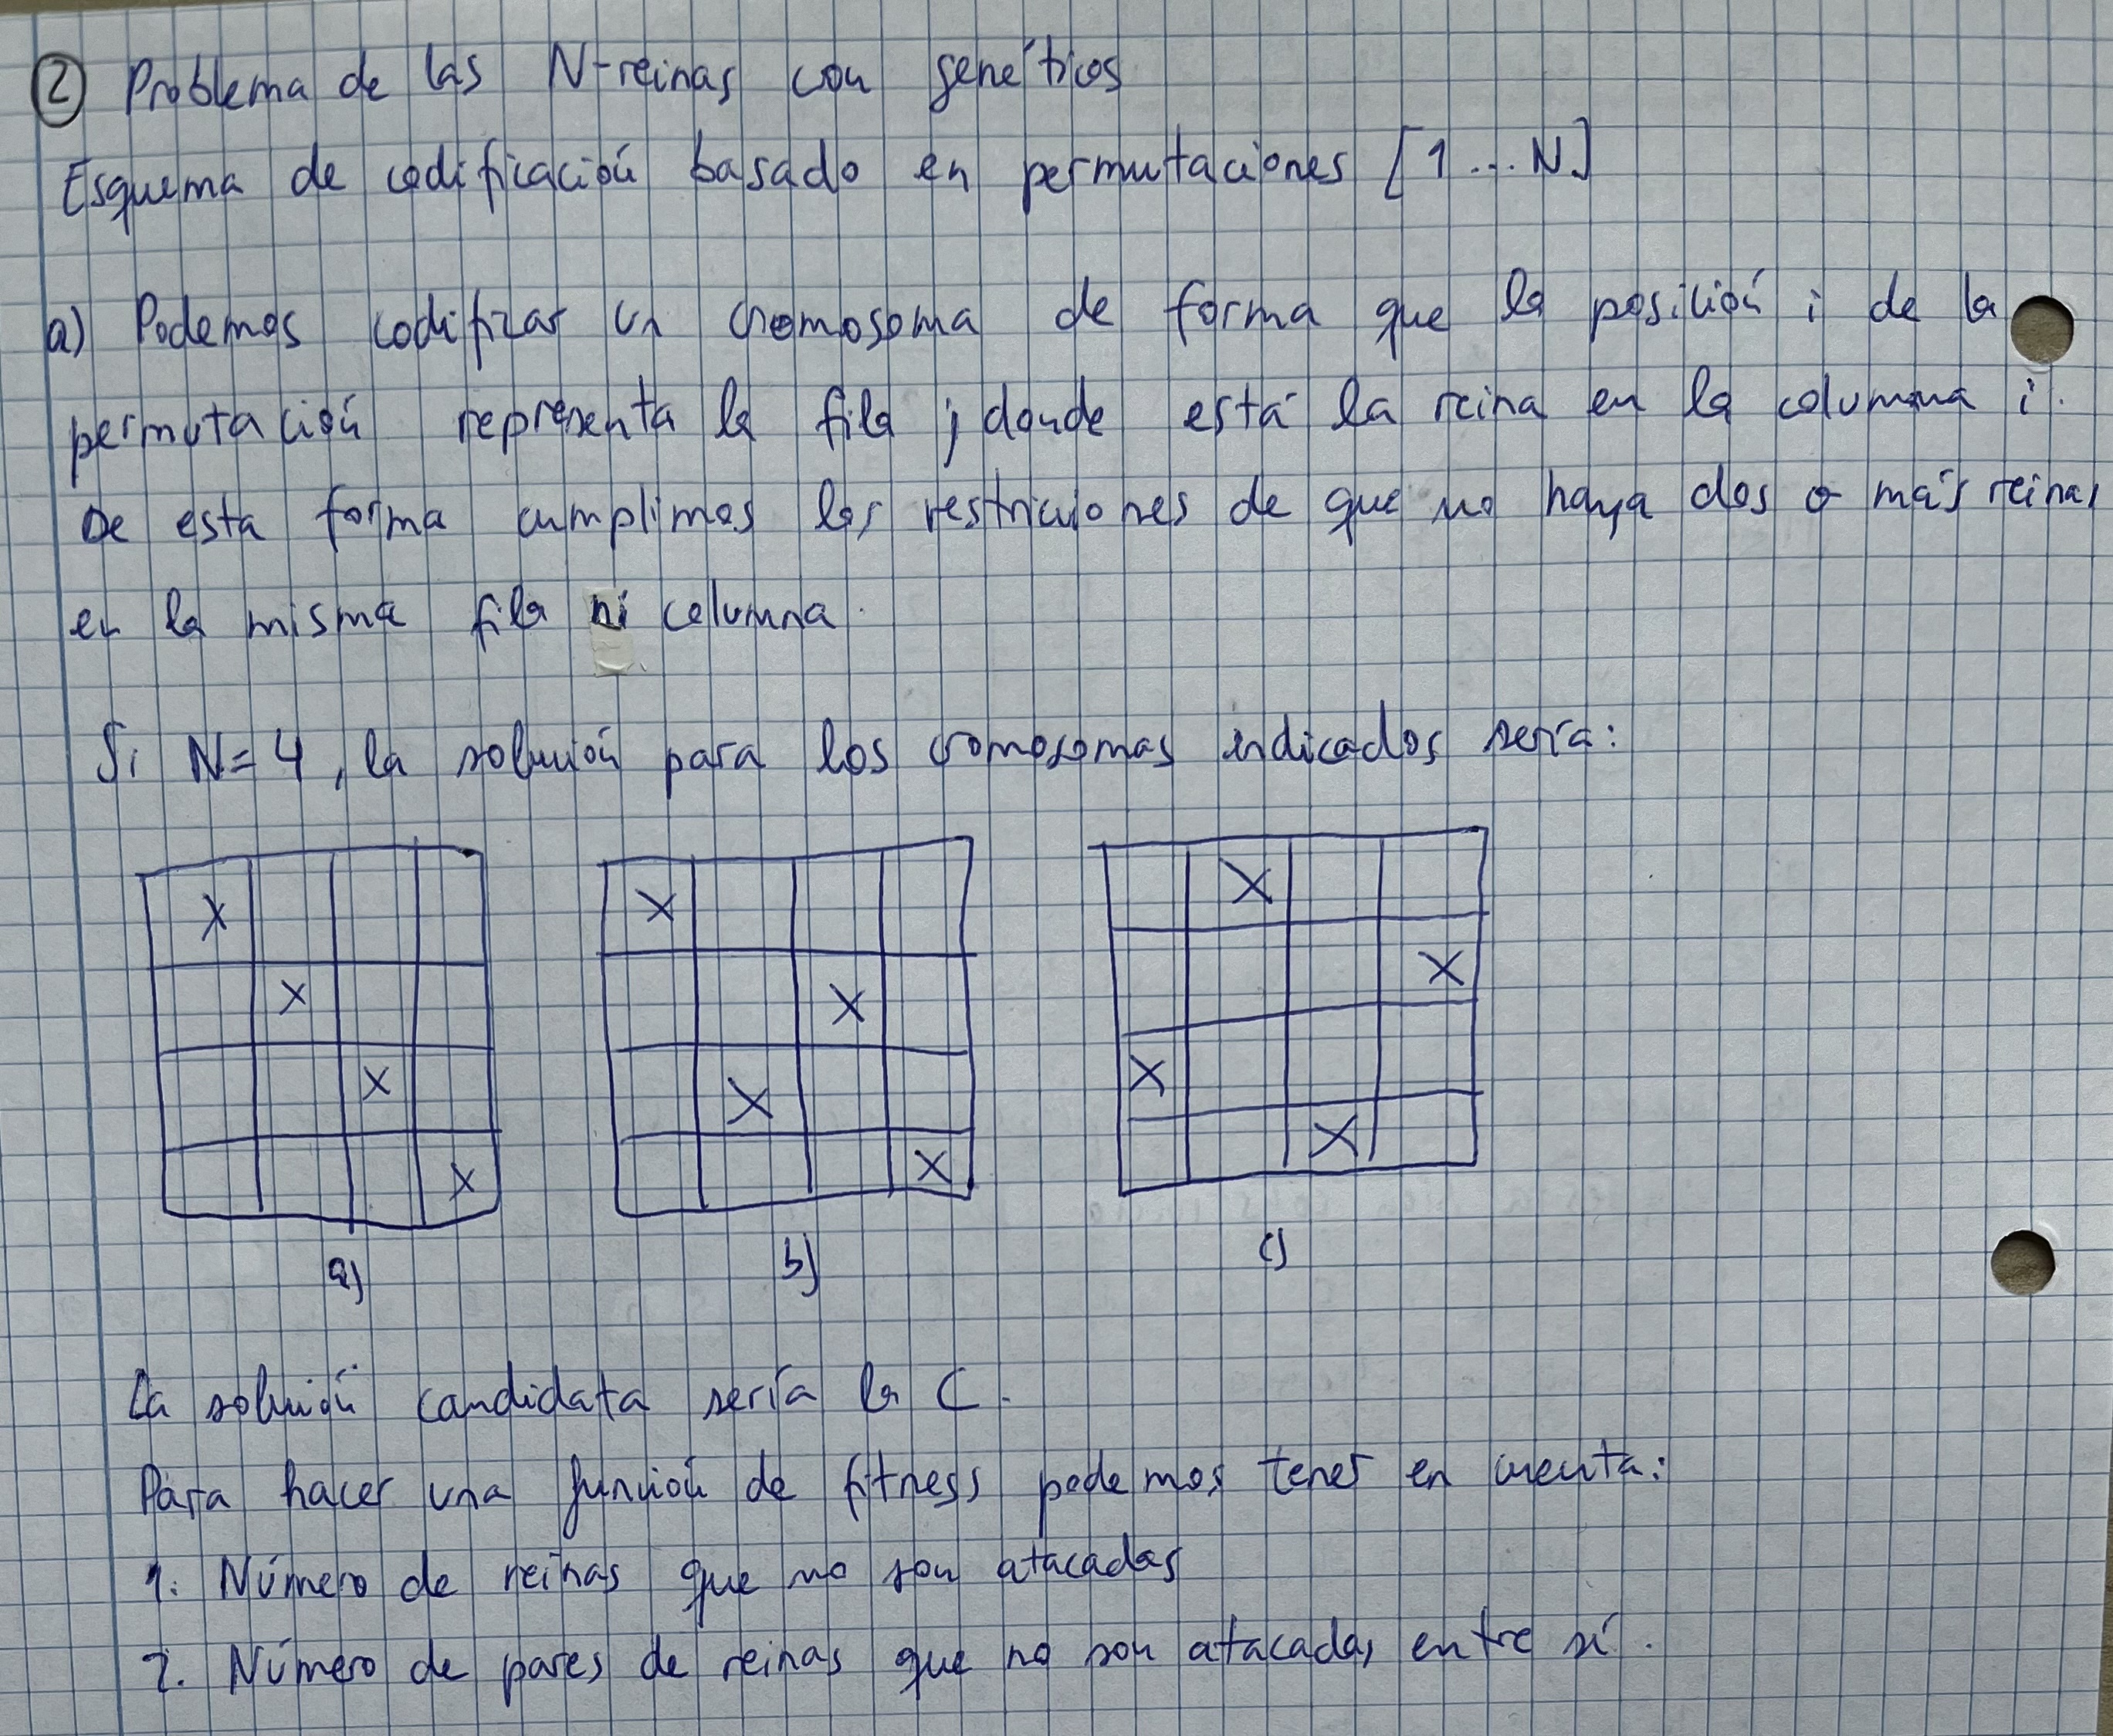 ② Problema de las N-reinas con genéticos
Esquema de codificación basado en permutaciones [1...N]
a) Podemos codificar un cromosoma de forma que la posición i de la
permutación representa la fila j donde está la reina en la columna i.
De esta forma cumplimos las restricciones de que no haya dos o más reinas
en la misma fila ni columna.
Si N=4, la solución para los cromosomas indicados sería:
X X X
X X X
X X X
X X X
a) b) c)
La solución candidata sería la C.
Para hacer una función de fitness podemos tener en cuenta:
1. Número de reinas que no son atacadas
2. Número de pares de reinas que no son atacadas entre sí.